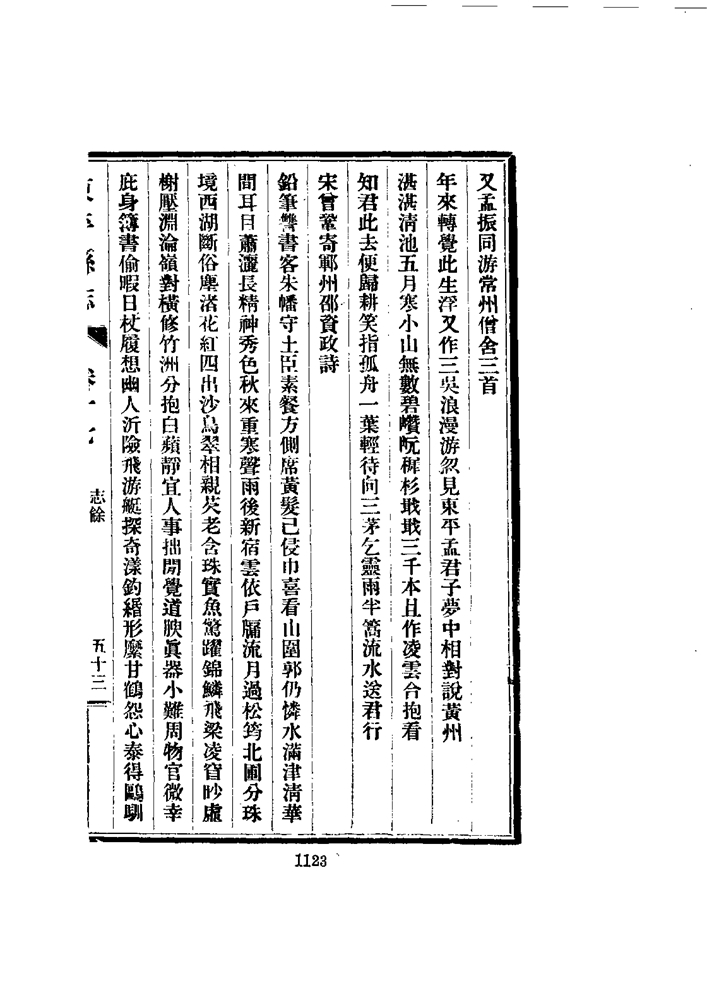 又孟振同游常州僧舍三首
年來轉覺此生浮又作三吳浪漫游忽見東平孟君子夢中相對說黃州
湛湛清池五月寒小山無數碧巑岏稚杉戢戢三千本且作凌雲合抱看
知君此去便歸耕笑指孤舟一葉輕待向三茅乞靈雨半篙流水送君行
宋曾鞏寄鄆州邵資政詩
鉛筆讐書客朱幡守土臣素餐方側席黃髮已侵巾喜看山圍郭仍憐水滿津清華
間耳目蕭灑長精神秀色秋來重寒聲雨後新宿雲依戶牖流月過松筠北圃分珠
境西湖斷俗塵渚花紅四出沙鳥翠相親芡老含珠實魚驚躍錦鱗飛梁凌窅眇虛
榭壓淵淪嶺對橫修竹洲分抱白蘋靜宜人事拙閒覺道腴眞器小難周物官微幸
庇身簿書偷暇日杖履想幽人沂險飛游艇探奇漾釣緡形縻甘鶴怨心泰得鷗馴
東平縣志
卷十七
志餘
五十三
1123